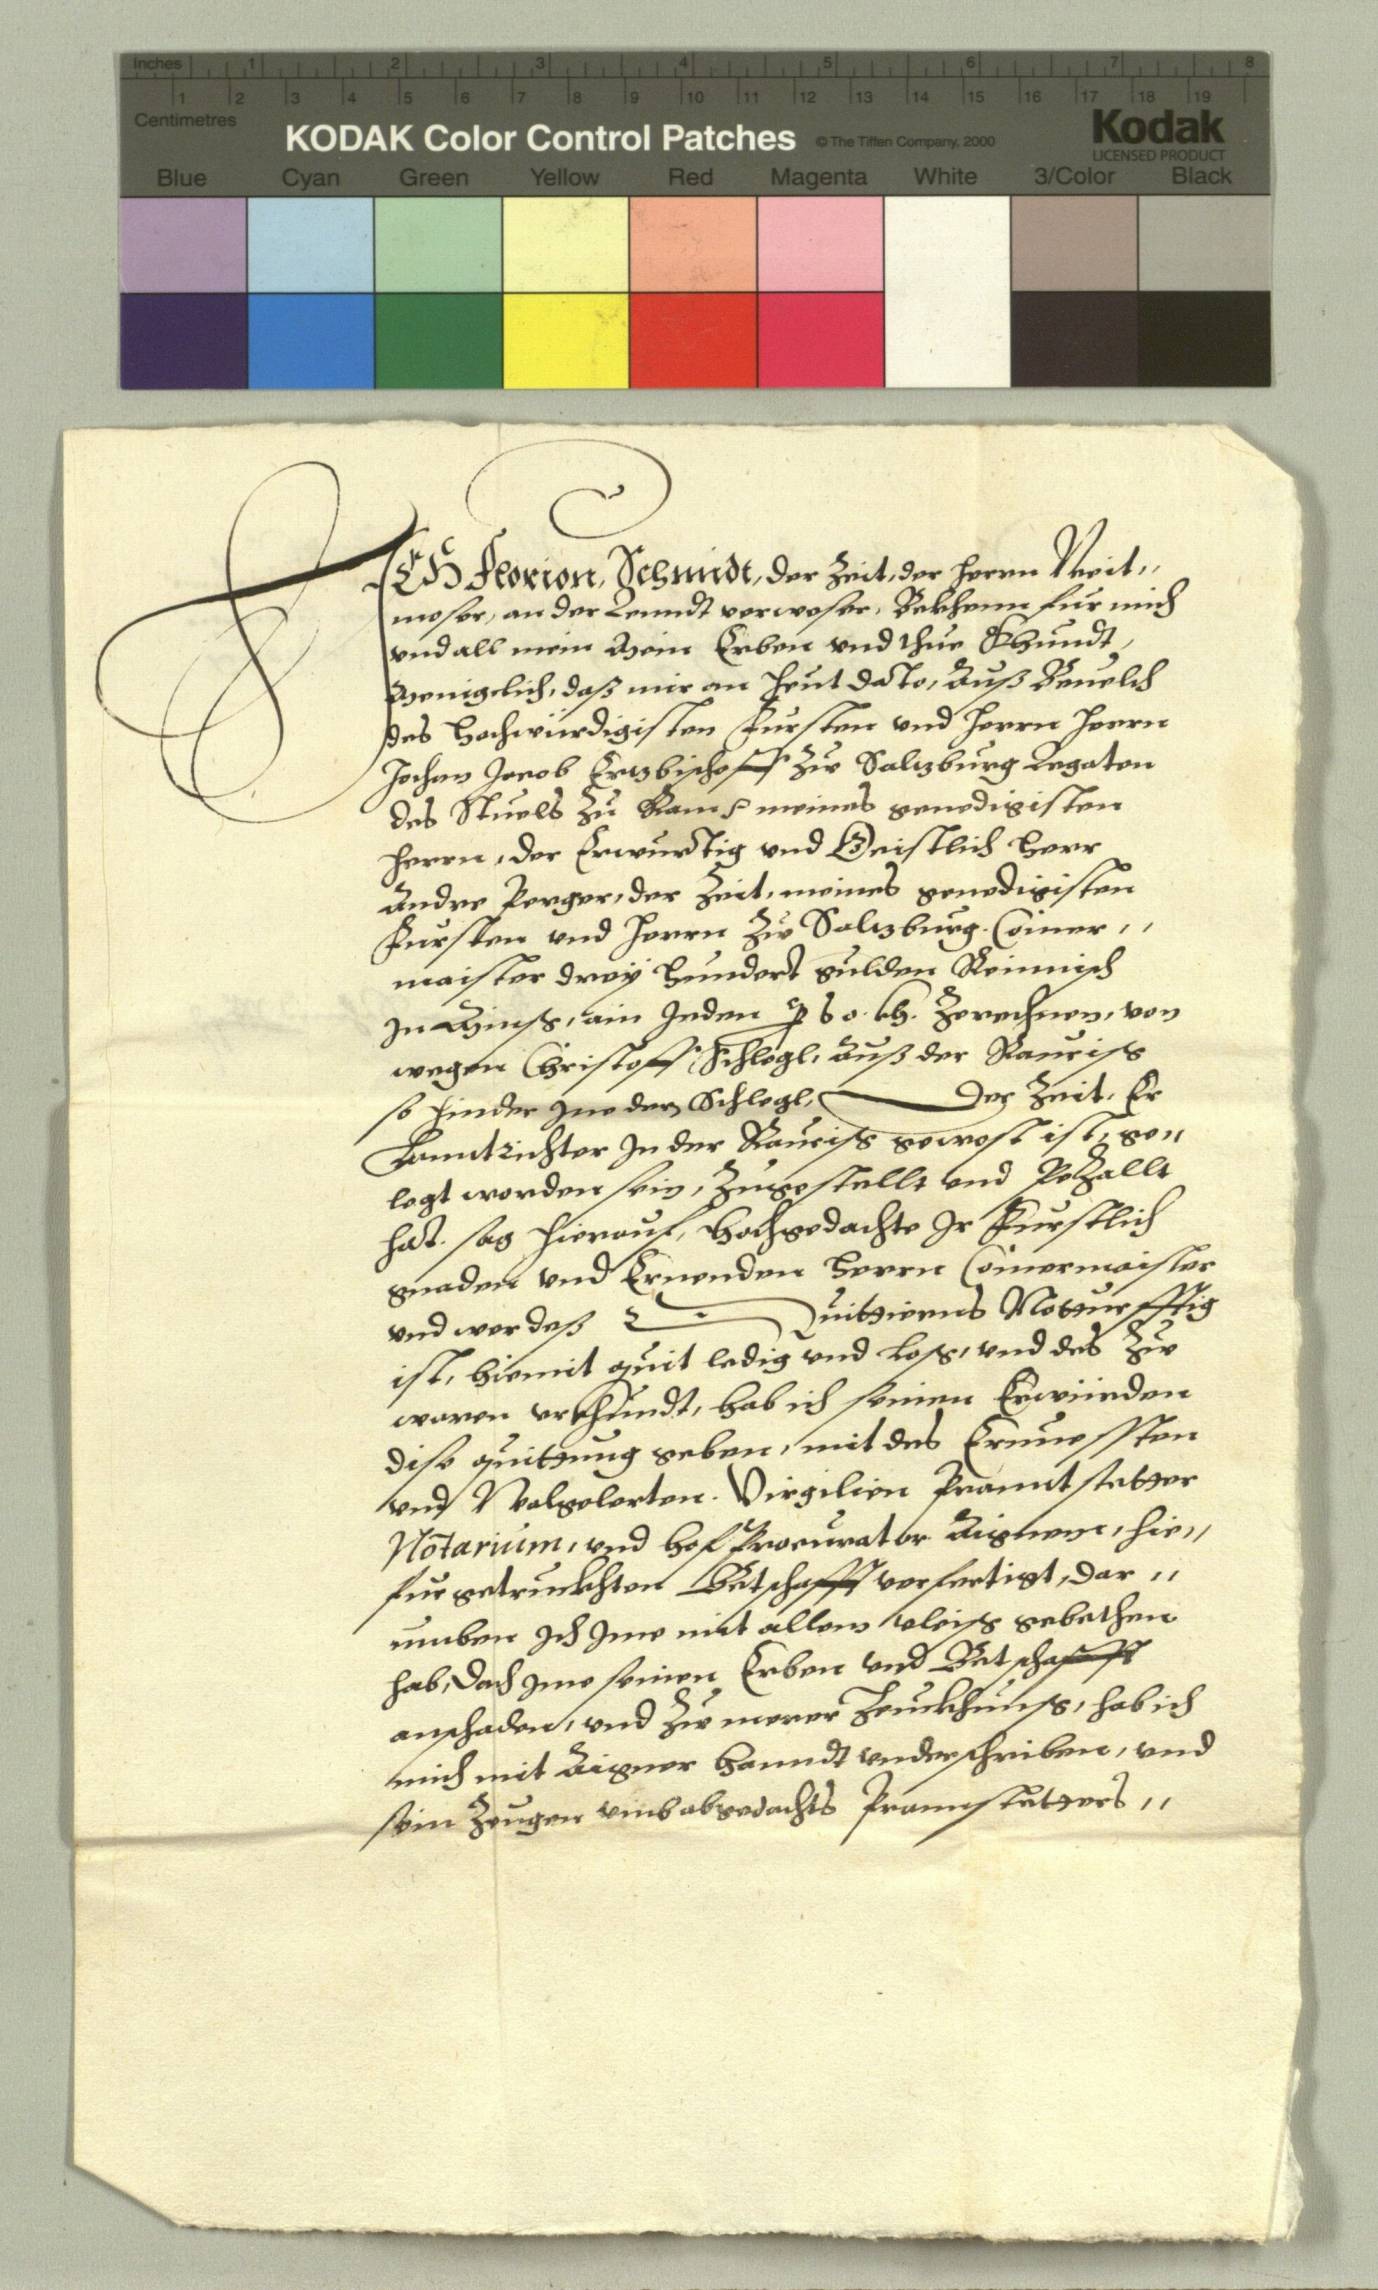 Inches 1 2 3 4 5 6 7 8
1 2 3 4 5 6 7 8 9 10 11 12 13 14 15 16 17 18 19
Centimetres
KODAK Color Control Patches © The Tiffen Company, 2000 Kodak
LICENSED PRODUCT
Blue Cyan Green Yellow Red Magenta White 3/Color Black
ICH Florian, Schmidt, der Zeit, der Herrn Weit„
moser, an der Lenndt verweser, Bekhenn fur mich
vnd all mein Erben vnd thue Khundt,
Menigclich, daß mir an Heut dato, Auß Beuelch
des Hochwürdigisten Fursten vnd Herrn Herrn
Johan Jacob Ertzbischoff Zw Saltzburg Legaten
des Stuels Zu Rom meines genedigisten
Herrn, der Erwurdtig vnd Geistlich Herr
Andre Perger, der Zeit, meines genedigisten
Fursten vnd Herrn Zw Saltzburg Camer„
maister drey Hundert gulden Reinnisch
In Müns, ain Jeden p 60 kr. Zerechnen, von
wegen Christoff Schlegl, Auß der Rauris
so Hinder Ine dem Schlegl, Der Zeit, Er
Lanndtrichter In der Rauris gewest ist, ge„
legt worden sein, Zugestellt vnd Petzallt
hat. sag Hierauf, Hochgedachte Ir Furstlich
gnaden vnd Ernenden Herrn Camermaister
vnd wer deß Quittierns Notturfftig
ist, hiemit quit ledig vnd loss, vnd des Zw
waren vrkhundt, hab ich seinen Erwürden
dise quittung geben, mit des Ernuessten
vnd Wolgelerten. Virgilien Pranntstetter
Notarium, vnd hof Procurator Aignem, hie„
fur getruckhten Betschafft verfertigt, dar„
umben Ich Ine mit allem vleiss gebethen
hab, Doch Ime seinen Erben vnd Betschafft
anschaden, vnd Zw merer Zeuckhnuss, hab ich
mich mit Aigner hanndt vnderschriben, vnd
sein Zeugen vmb obgedachts Prannstetters„